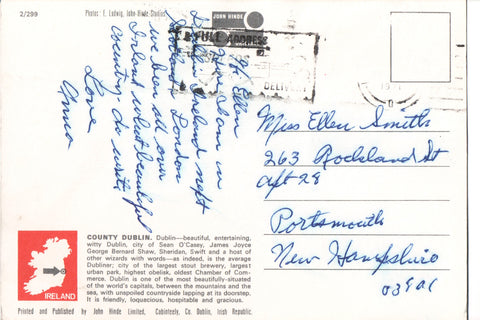 2/299
Photo: E. Ludwig, John Hinde Studios
JOHN HINDE
FULL ADDRESS
DELIVERY
Hi Ellen
Here I am in
Dublin Ireland next
Scotland & London
we been all over
Ireland what beautiful
Country - do write
Love
Anna
Miss Ellen Smith
263 Rockland St
apt 28
Portsmouth
New Hampshire
03801
COUNTY DUBLIN. Dublin—beautiful, entertaining,
witty Dublin, city of Sean O'Casey, James Joyce
George Bernard Shaw, Sheridan, Swift and a host of
other wizards with words—as indeed, is the average
Dubliner; city of the largest stout brewery, largest
urban park, highest obelisk, oldest Chamber of Com-
merce. Dublin is one of the most beautifully-situated
of the world's capitals, between the mountains and the
sea, with unspoiled countryside lapping at its doorstep.
It is friendly, loquacious, hospitable and gracious.
IRELAND
Printed and Published by John Hinde Limited, Cabinteely, Co. Dublin, Irish Republic.